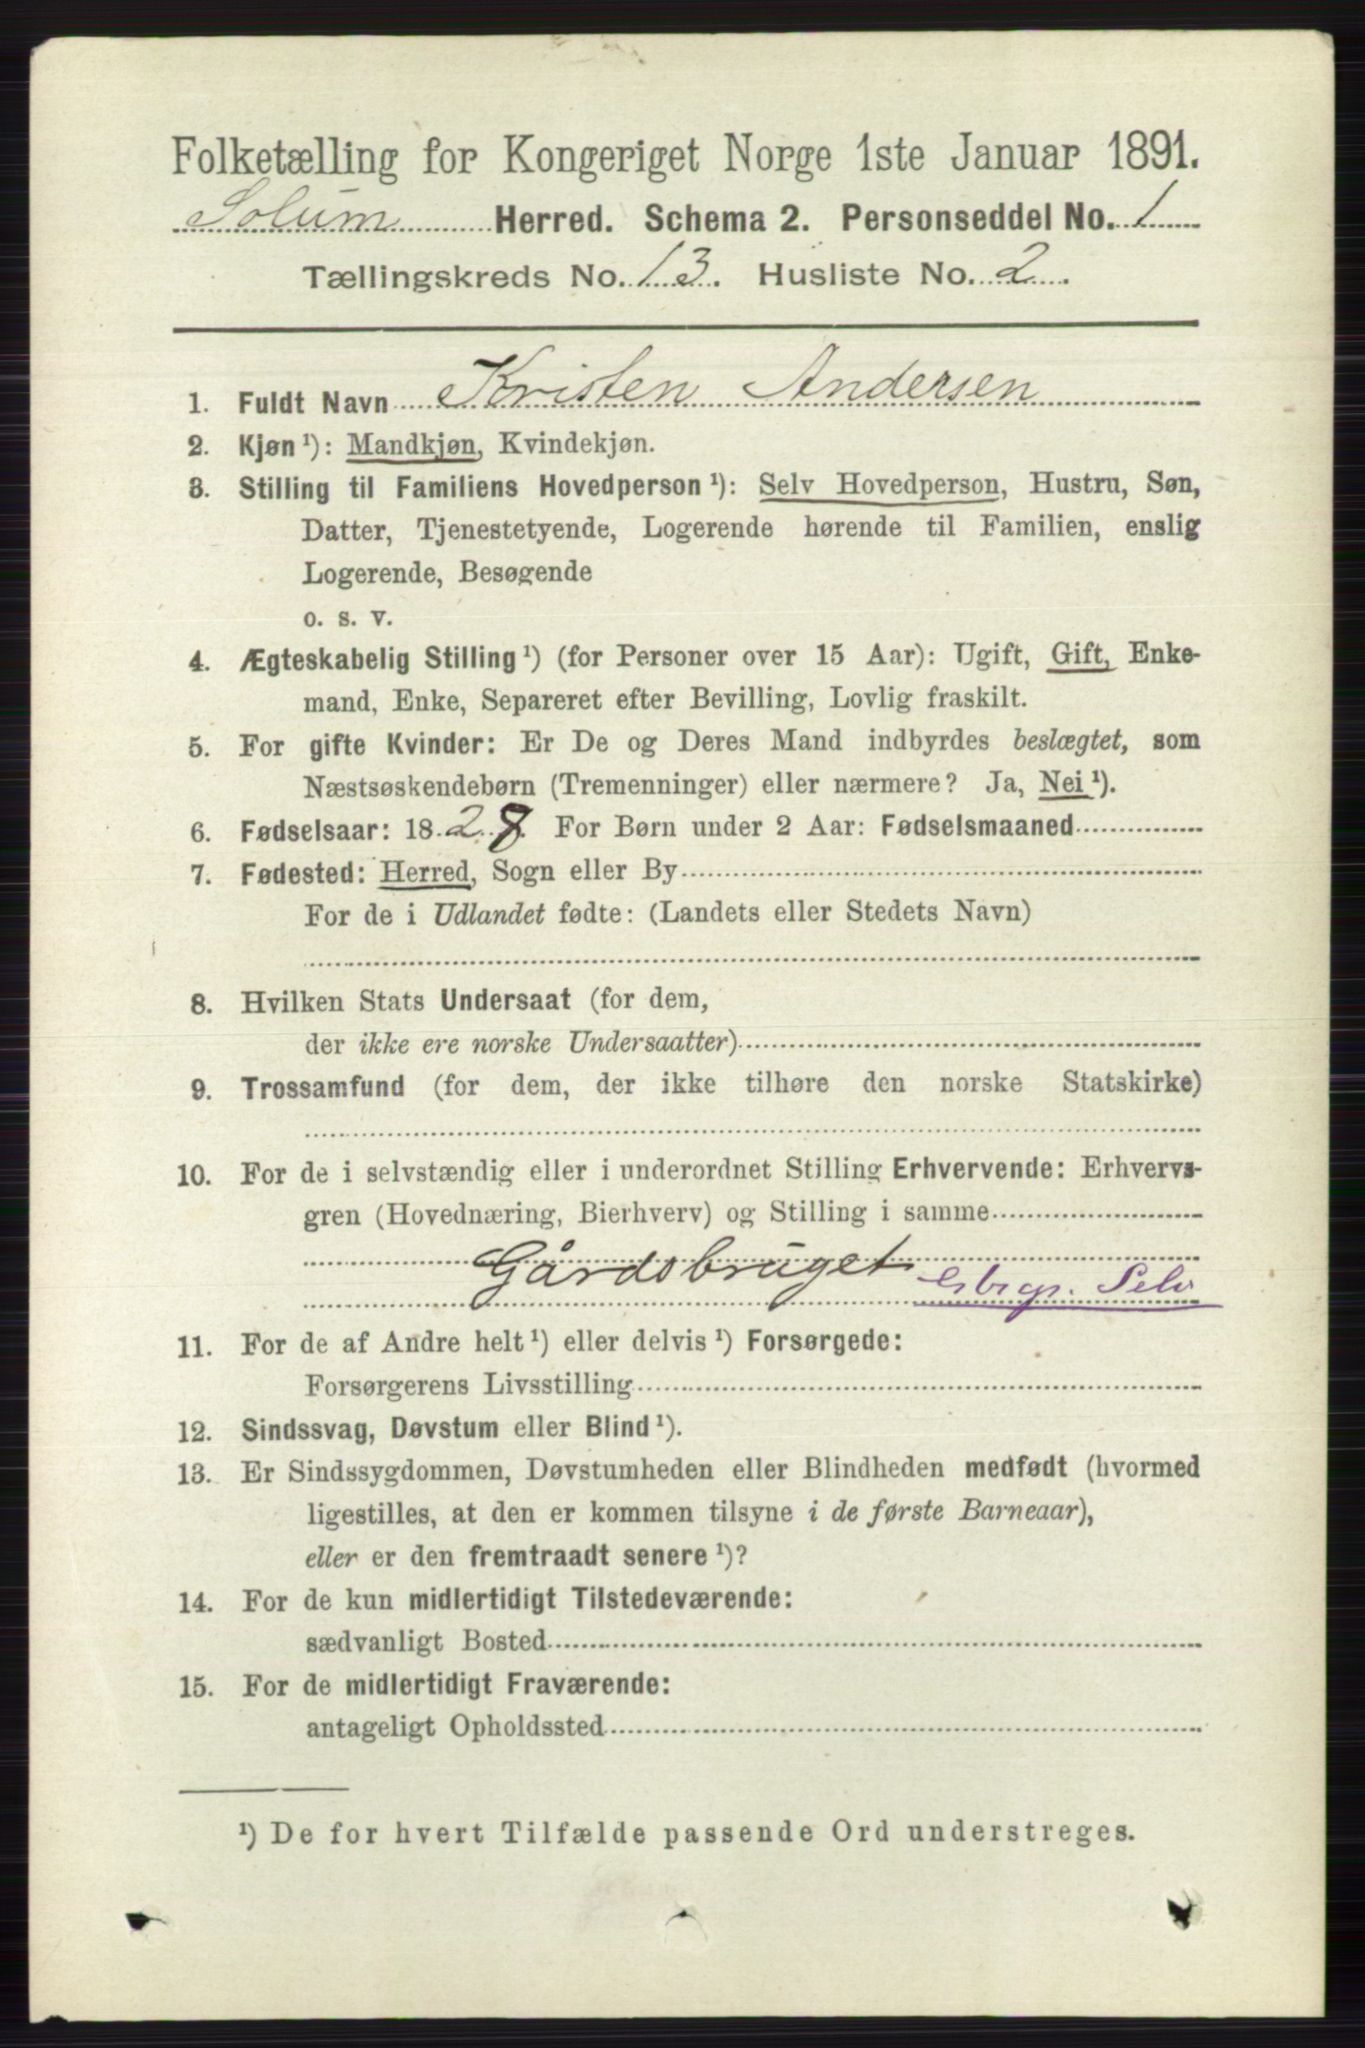 Folketælling for Kongeriget Norge 1ste Januar 1891.
Solum Herred. Schema 2. Personseddel No. 1
Tællingskreds No. 13. Husliste No. 2.
1. Fuldt Navn Kristen Andersen
2. Kjøn ¹): Mandkjøn, Kvindekjøn.
3. Stilling til Familiens Hovedperson ¹): Selv Hovedperson, Hustru, Søn,
Datter, Tjenestetyende, Logerende hørende til Familien, enslig
Logerende, Besøgende
o. s. v.
4. Ægteskabelig Stilling ¹) (for Personer over 15 Aar): Ugift, Gift, Enke-
mand, Enke, Separeret efter Bevilling, Lovlig fraskilt.
5. For gifte Kvinder: Er De og Deres Mand indbyrdes beslægtet, som
Næstsøskendebørn (Tremenninger) eller nærmere? Ja, Nei ¹).
6. Fødselsaar: 1828. For Børn under 2 Aar: Fødselsmaaned
7. Fødested: Herred, Sogn eller By
For de i Udlandet fødte: (Landets eller Stedets Navn)
8. Hvilken Stats Undersaat (for dem,
der ikke ere norske Undersaatter)
9. Trossamfund (for dem, der ikke tilhøre den norske Statskirke)
10. For de i selvstændig eller i underordnet Stilling Erhvervende: Erhvervs-
gren (Hovednæring, Bierhverv) og Stilling i samme
Gårdsbruget Gbrgr. Selv
11. For de af Andre helt ¹) eller delvis ¹) Forsørgede:
Forsørgerens Livsstilling
12. Sindssvag, Døvstum eller Blind ¹).
13. Er Sindssygdommen, Døvstumheden eller Blindheden medfødt (hvormed
ligestilles, at den er kommen tilsyne i de første Barneaar),
eller er den fremtraadt senere ¹)?
14. For de kun midlertidigt Tilstedeværende:
sædvanligt Bosted
15. For de midlertidigt Fraværende:
antageligt Opholdssted
¹) De for hvert Tilfælde passende Ord understreges.